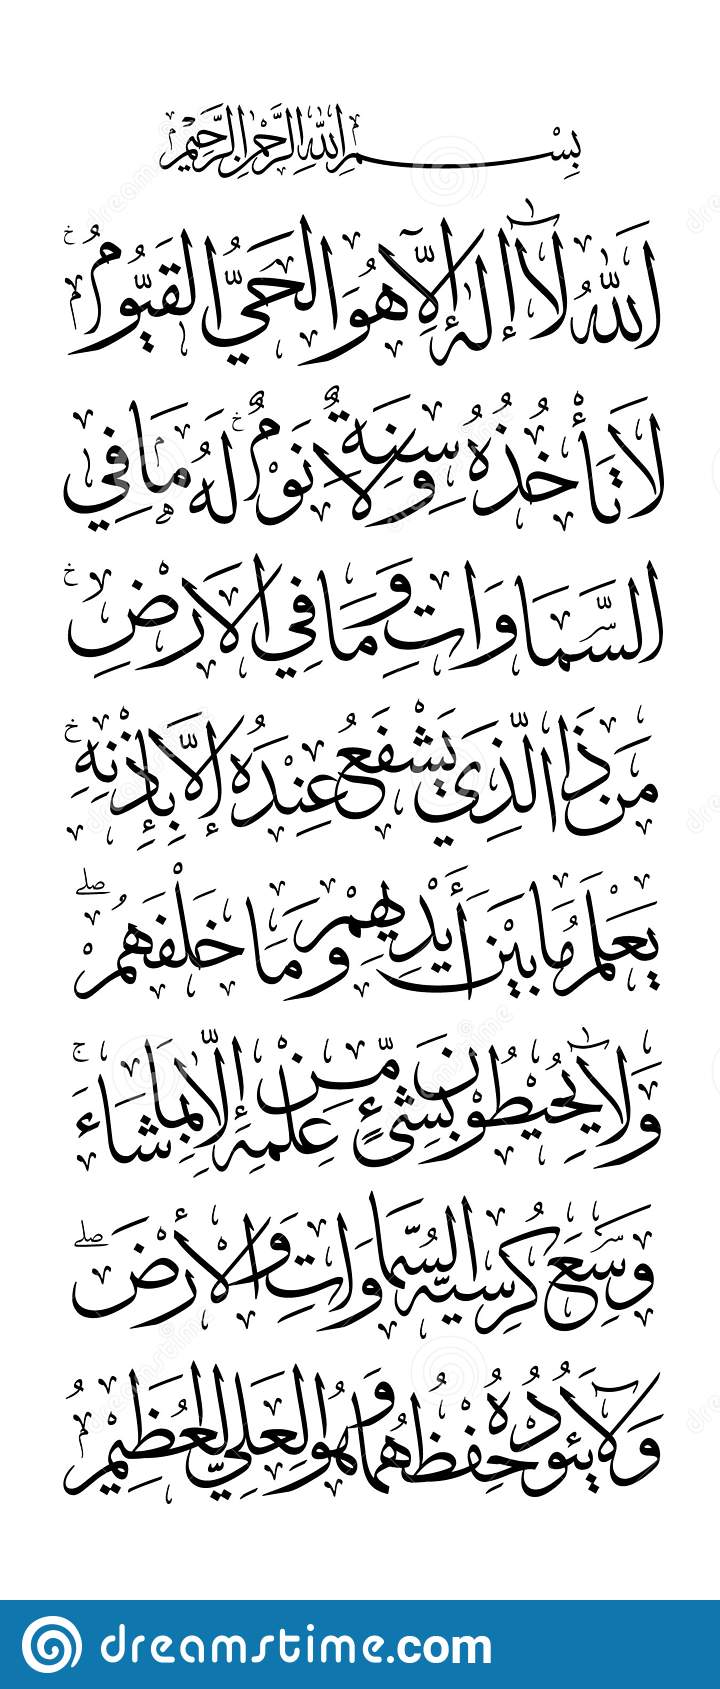 بِسْمِ اللهِ الرَّحْمٰنِ الرَّحِيْمِ
اَللّٰهُ لَآ إِلٰهَ إِلَّا هُوَ الْحَيُّ الْقَيُّوْمُ ۚ
لَا تَأْخُذُهُ سِنَةٌ وَلَا نَوْمٌ ۚ لَهُ مَا فِي
السَّمَاوَاتِ وَمَا فِي الْاَرْضِ ۚ
مَنْ ذَا الَّذِيْ يَشْفَعُ عِنْدَهُ إِلَّا بِإِذْنِهِ ۚ
يَعْلَمُ مَا بَيْنَ أَيْدِيْهِمْ وَمَا خَلْفَهُمْ ۖ
وَلَا يُحِيْطُوْنَ بِشَيْءٍ مِّنْ عِلْمِهِ إِلَّا بِمَا شَاءَ ۚ
وَسِعَ كُرْسِيُّهُ السَّمَاوَاتِ وَالْأَرْضَ ۖ
وَلَا يَئُوْدُهُ حِفْظُهُمَا وَهُوَ الْعَلِيُّ الْعَظِيْمُ
dreamstime.com